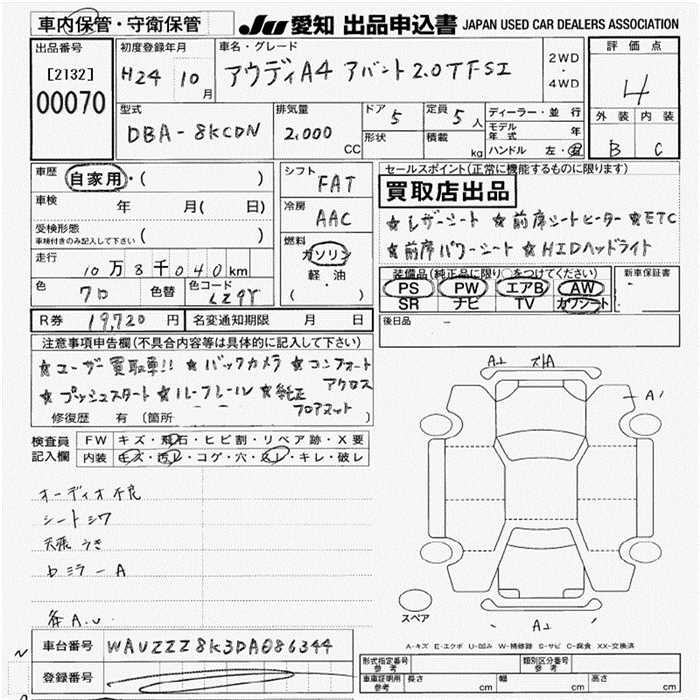 車内保管・守衛保管
JU 愛知 出品申込書 JAPAN USED CAR DEALERS ASSOCIATION
出品番号
[2132]
00070
初度登録年月
H24 10月
車名・グレード
アウディA4 アバント2.0TFSI
2WD
・
4WD
評価点
4
外装 内装
B C
型式
DBA-8KCDN
排気量
2,000 CC
ドア 5
形状
定員 5人
積載 kg
ディーラー・並行
モデル年式 年
ハンドル 左・右
車歴
自家用・( )
車検
年 月( 日)
受検形態
車検付きのみ記入して下さい ( )
走行
10万3千040km
色 色替 色コード
クロ LZ9Y
シフト
FAT
冷房
AAC
燃料
ガソリン
軽・油
( )
セールスポイント(正常に機能するものに限ります)
買取店出品
☆レザーシート ☆前席シートヒーター ☆ETC
☆前席パワーシート ☆HIDヘッドライト
装備品(純正品に限り○をつけてください)
PS PW エアB AW
SR ナビ TV カワシート
新車保証書
後日品
R券 19,720円 名変通知期限 月 日
注意事項申告欄(不具合内容等は具体的に記入して下さい)
☆ユーザー買取車!! ☆バックカメラ ☆コンフォート
アクロス
☆プッシュスタート ☆ルーフレール ☆純正
フロアマット
修復歴 有(箇所
検査員
記入欄
FW キズ・飛石・ヒビ割・リペア跡・X要
内装 キズ・汚レ・コゲ・穴・スレ・キレ・破レ
オーディオ不良
シートシワ
天張うき
ロミラーA
各A.U.
A'
スペア
A-キズ E-エクボ U-凹み W-補修跡 S-サビ C-腐食 XX-交換済
車台番号 WAUZZZ8K3DA086344
登録番号
形式指定番号
参考
類別区分番号
参考
車庫証明用
参考
長さ cm 幅 cm 高さ cm